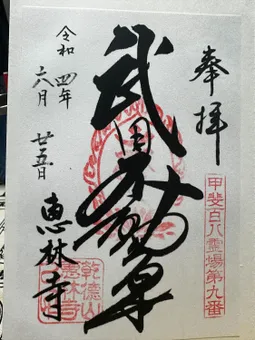 奉拝
甲斐百八霊場第九番
武田不動尊
令和四年
六月廿五日
恵林寺
乾徳山
恵林寺